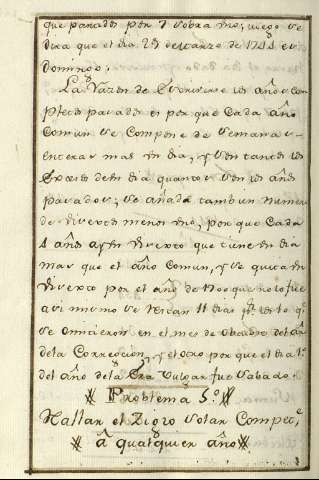 que parados por 7 sobra uno, luego se
dira que el dia 25 de Marzo de 1744 es
Domingo.
La Razon de escrivirse los años com
pletos parados es por que cada año
comun se compone de semanas
enteras mas un dia, y son tantos los
excesos de un dia quantos son los años
parados; se añada tambien numero
de visextos menos uno, por que cada
4 años ay un visexto que tiene un dia
mas que el año comun, y se quita un
visexto por el año de 1700 que no lo fue
asi mismo se restan 11 dias los diez qe
se omitieron en el mes de octubre del año
de la Correccion, y el otro por que el dia 1.º
del año de la Era Vulgar fue Sabado.
Problema 5.º
Hallar el Ziclo Solar compete
â qualquier año